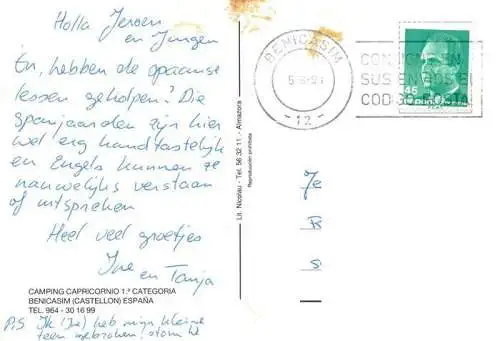 Holla Jeroen
en Jurgen
En, hebben de spaanse
lessen geholpen? Die
spanjaarden zijn hier
wel erg handtastelijk
en Engels kunnen ze
nauwelijks verstaan
of uitspreken
Heel veel groetjes
en Tanja
CAMPING CAPRICORNIO 1.ª CATEGORIA
BENICASIM (CASTELLON) ESPAÑA
TEL. 964 - 30 16 99
P.S Ik heb mijn kleine
teen gebroken! stom hè
Lit. Nicolau - Tel. 56 32 11 - Almazora
Reproducción prohibida
BENICASIM
- 12 -
SUS ENVIOS
45
Je
R
S